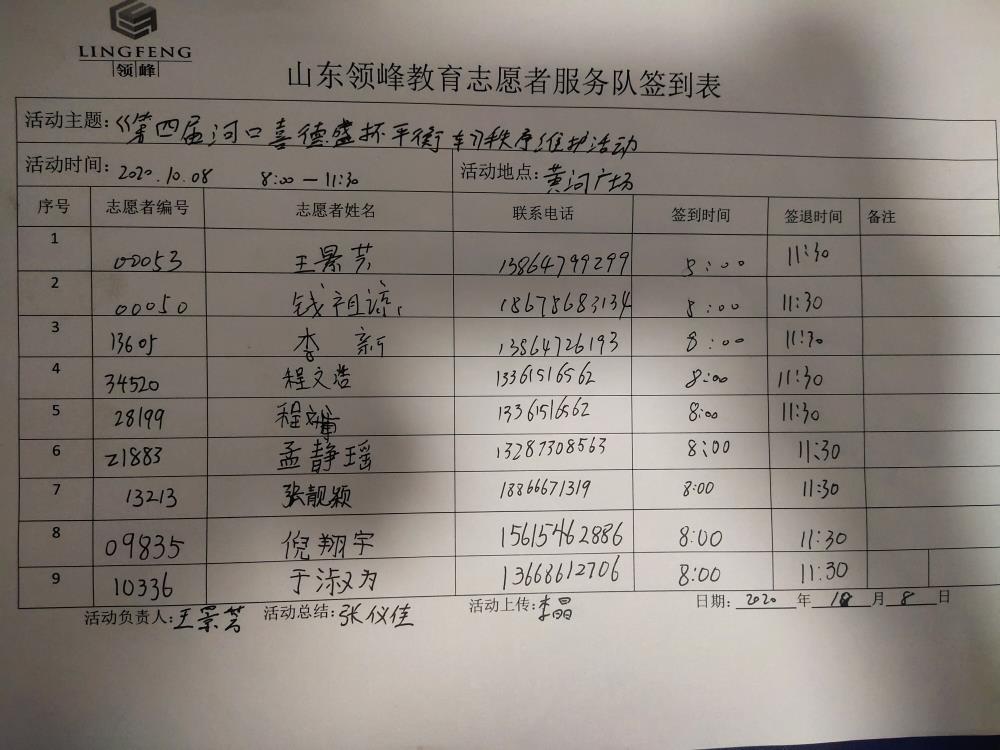 LINGFENG
领峰
山东领峰教育志愿者服务队签到表
活动主题:《第四届河口喜德盛杯平衡车》秩序维护活动
活动时间: 2020.10.08 8:00—11:30 活动地点: 黄河广场
序号 志愿者编号 志愿者姓名 联系电话 签到时间 签退时间 备注
1 00053 王景芳 13864799299 8:00 11:30
2 00050 钱祖谅 18678683134 8:00 11:30
3 13605 李新 13864726193 8:00 11:30
4 34520 程文浩 13361516562 8:00 11:30
5 28199 程 13361516562 8:00 11:30
6 21883 孟静瑶 13287308563 8:00 11:30
7 13213 张靓颖 18866671319 8:00 11:30
8 09835 倪翔宇 15615462886 8:00 11:30
9 10336 于淑为 13668612706 8:00 11:30
活动负责人: 王景芳 活动总结: 张仪佳 活动上传: 李晶 日期: 2020 年 10 月 8 日